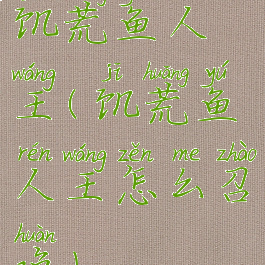 饥荒鱼人
wáng jī huāng yú
王(饥荒鱼
rén wáng zěn me zhào
人王怎么召
huàn
唤)